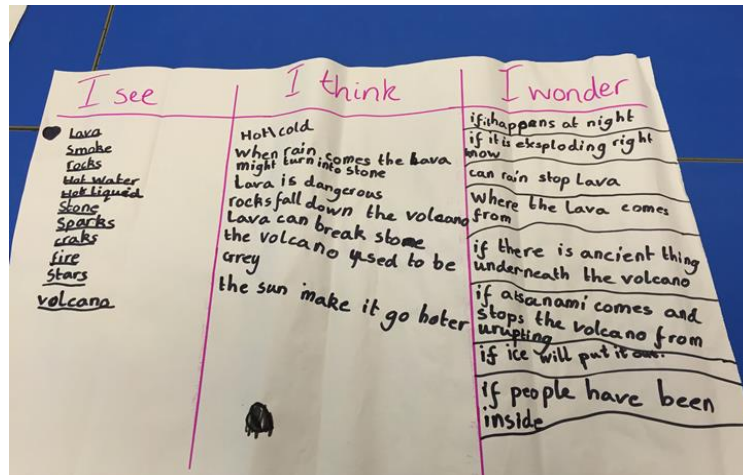 I see
Lava
Smoke
rocks
Hot water
Hot liquid
Stone
Sparks
craks
fire
Stars
volcano
I think
Hot cold
When rain comes the Lava
might turn into stone
Lava is dangerous
rocks fall down the volcano
Lava can break stone
the volcano used to be
Grey
the sun make it go hoter
I wonder
if ithappens at night
if it is eksploding right
now
can rain stop Lava
Where the Lava comes
from
if there is ancient thing
underneath the volcano
if a tsanami comes and
stops the volcano from
urupting
if ice will put it out.
if people have been
inside